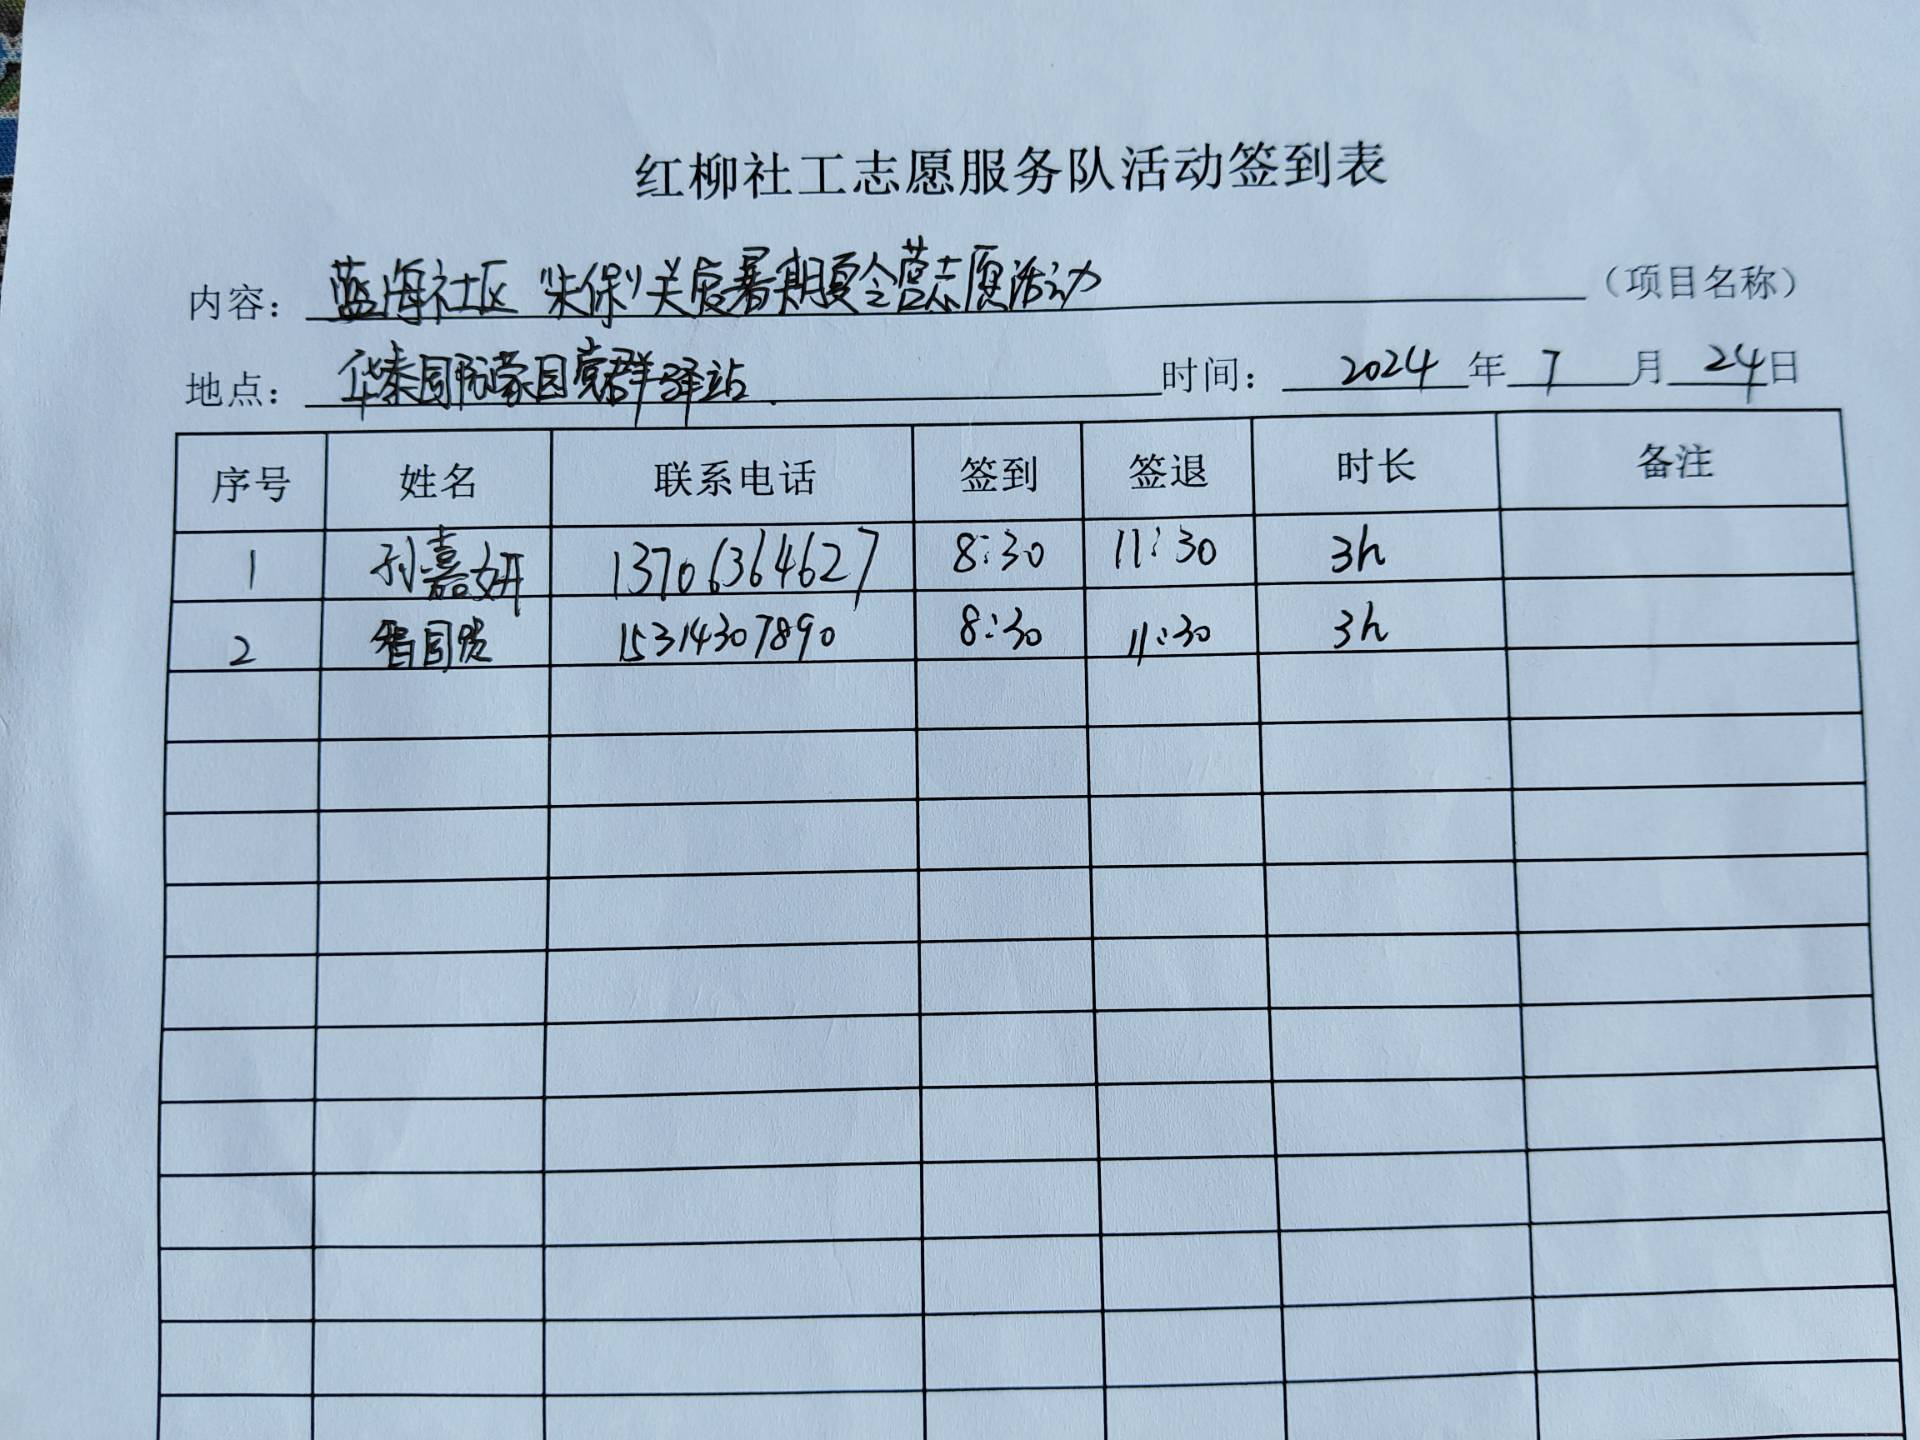 红柳社工志愿服务队活动签到表
内容：蓝海社区“未保”关爱暑期夏令营志愿活动（项目名称）
地点：华泰国际家园党群驿站 时间：2024年7月24日
序号 姓名 联系电话 签到 签退 时长 备注
1 孙嘉妍 13706364627 8:30 11:30 3h
2 国 15314307890 8:30 11:30 3h